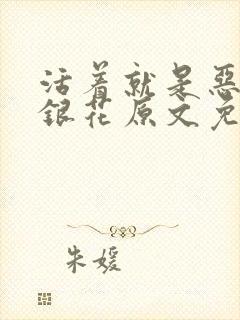 活着就是恶
银花原文免
朱媛